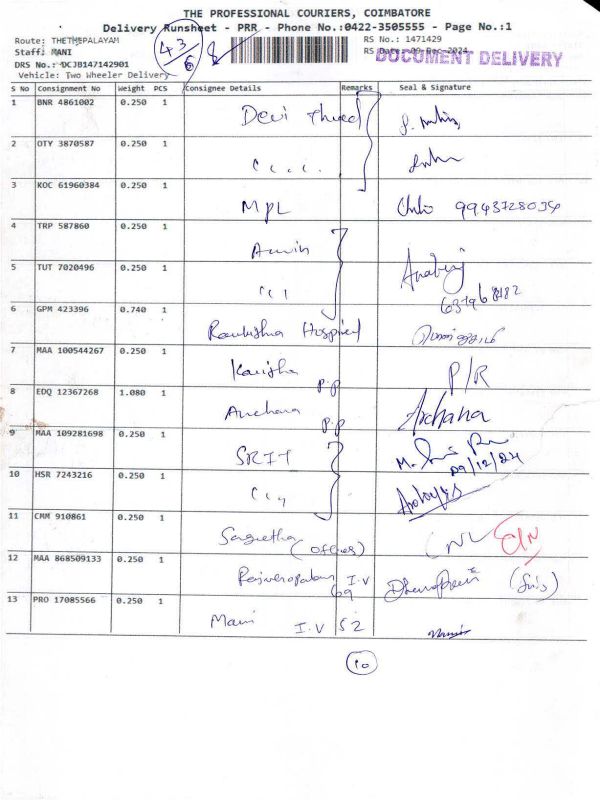 THE PROFESSIONAL COURIERS, COIMBATORE
Delivery Runsheet - PRR - Phone No.:0422-3505555 - Page No.:1
Route: THETHEPALAYAM
RS No.: 1471429
Staff: MANI
RS Date: 09-Dec-2024
DRS No.: DCJB147142901
DOCUMENT DELIVERY
Vehicle: Two Wheeler Delivery
43/6
S No Consignment No Weight PCS Consignee Details Remarks Seal & Signature
1 BNR 4861002 0.250 1 Devi Thread
2 OTY 3870587 0.250 1
3 KOC 61960384 0.250 1 MPL 9943728034
4 TRP 587860 0.250 1
5 TUT 7020496 0.250 1
6 GPM 423396 0.740 1 Hospital
7 MAA 100544267 0.250 1 P.P P/R
8 EDQ 12367268 1.080 1 P.P Archana
9 MAA 109281698 0.250 1 SRIT 09/12/24
10 HSR 7243216 0.250 1
11 CMM 910861 0.250 1 (Office)
12 MAA 868509133 0.250 1 I.V 69
13 PRO 17085566 0.250 1 Mani I.V 52
10